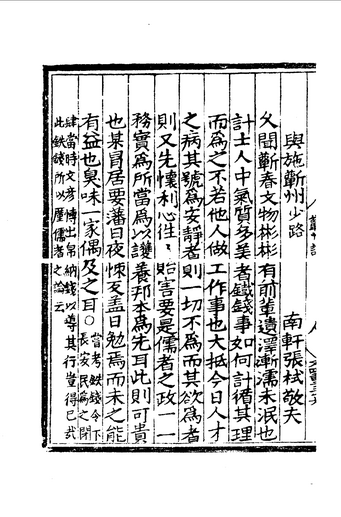 與施蘄州少路
南軒張栻敬夫
久聞蘄春文物彬彬有前輩遺澤漸濡未泯也
計士人中氣質多美者鐵錢事如何計循其理
而為之不若他人做工作事也大抵今日人才
之病其號為安靜者則一切不為而其欲為者
則又先懷利心往〻貽害要是儒者之政一一
務實為所當為以護養邦本為先耳此則可貴
也某冒居要藩日夜悚仄盖日勉焉而未之能
有益也臭味一家偶及之耳○當考鉄錢令下長安民為之閉
肆當時文彥博出帛納錢以導其行豈得已㢤
此鉄錢所以厪儒者之論云